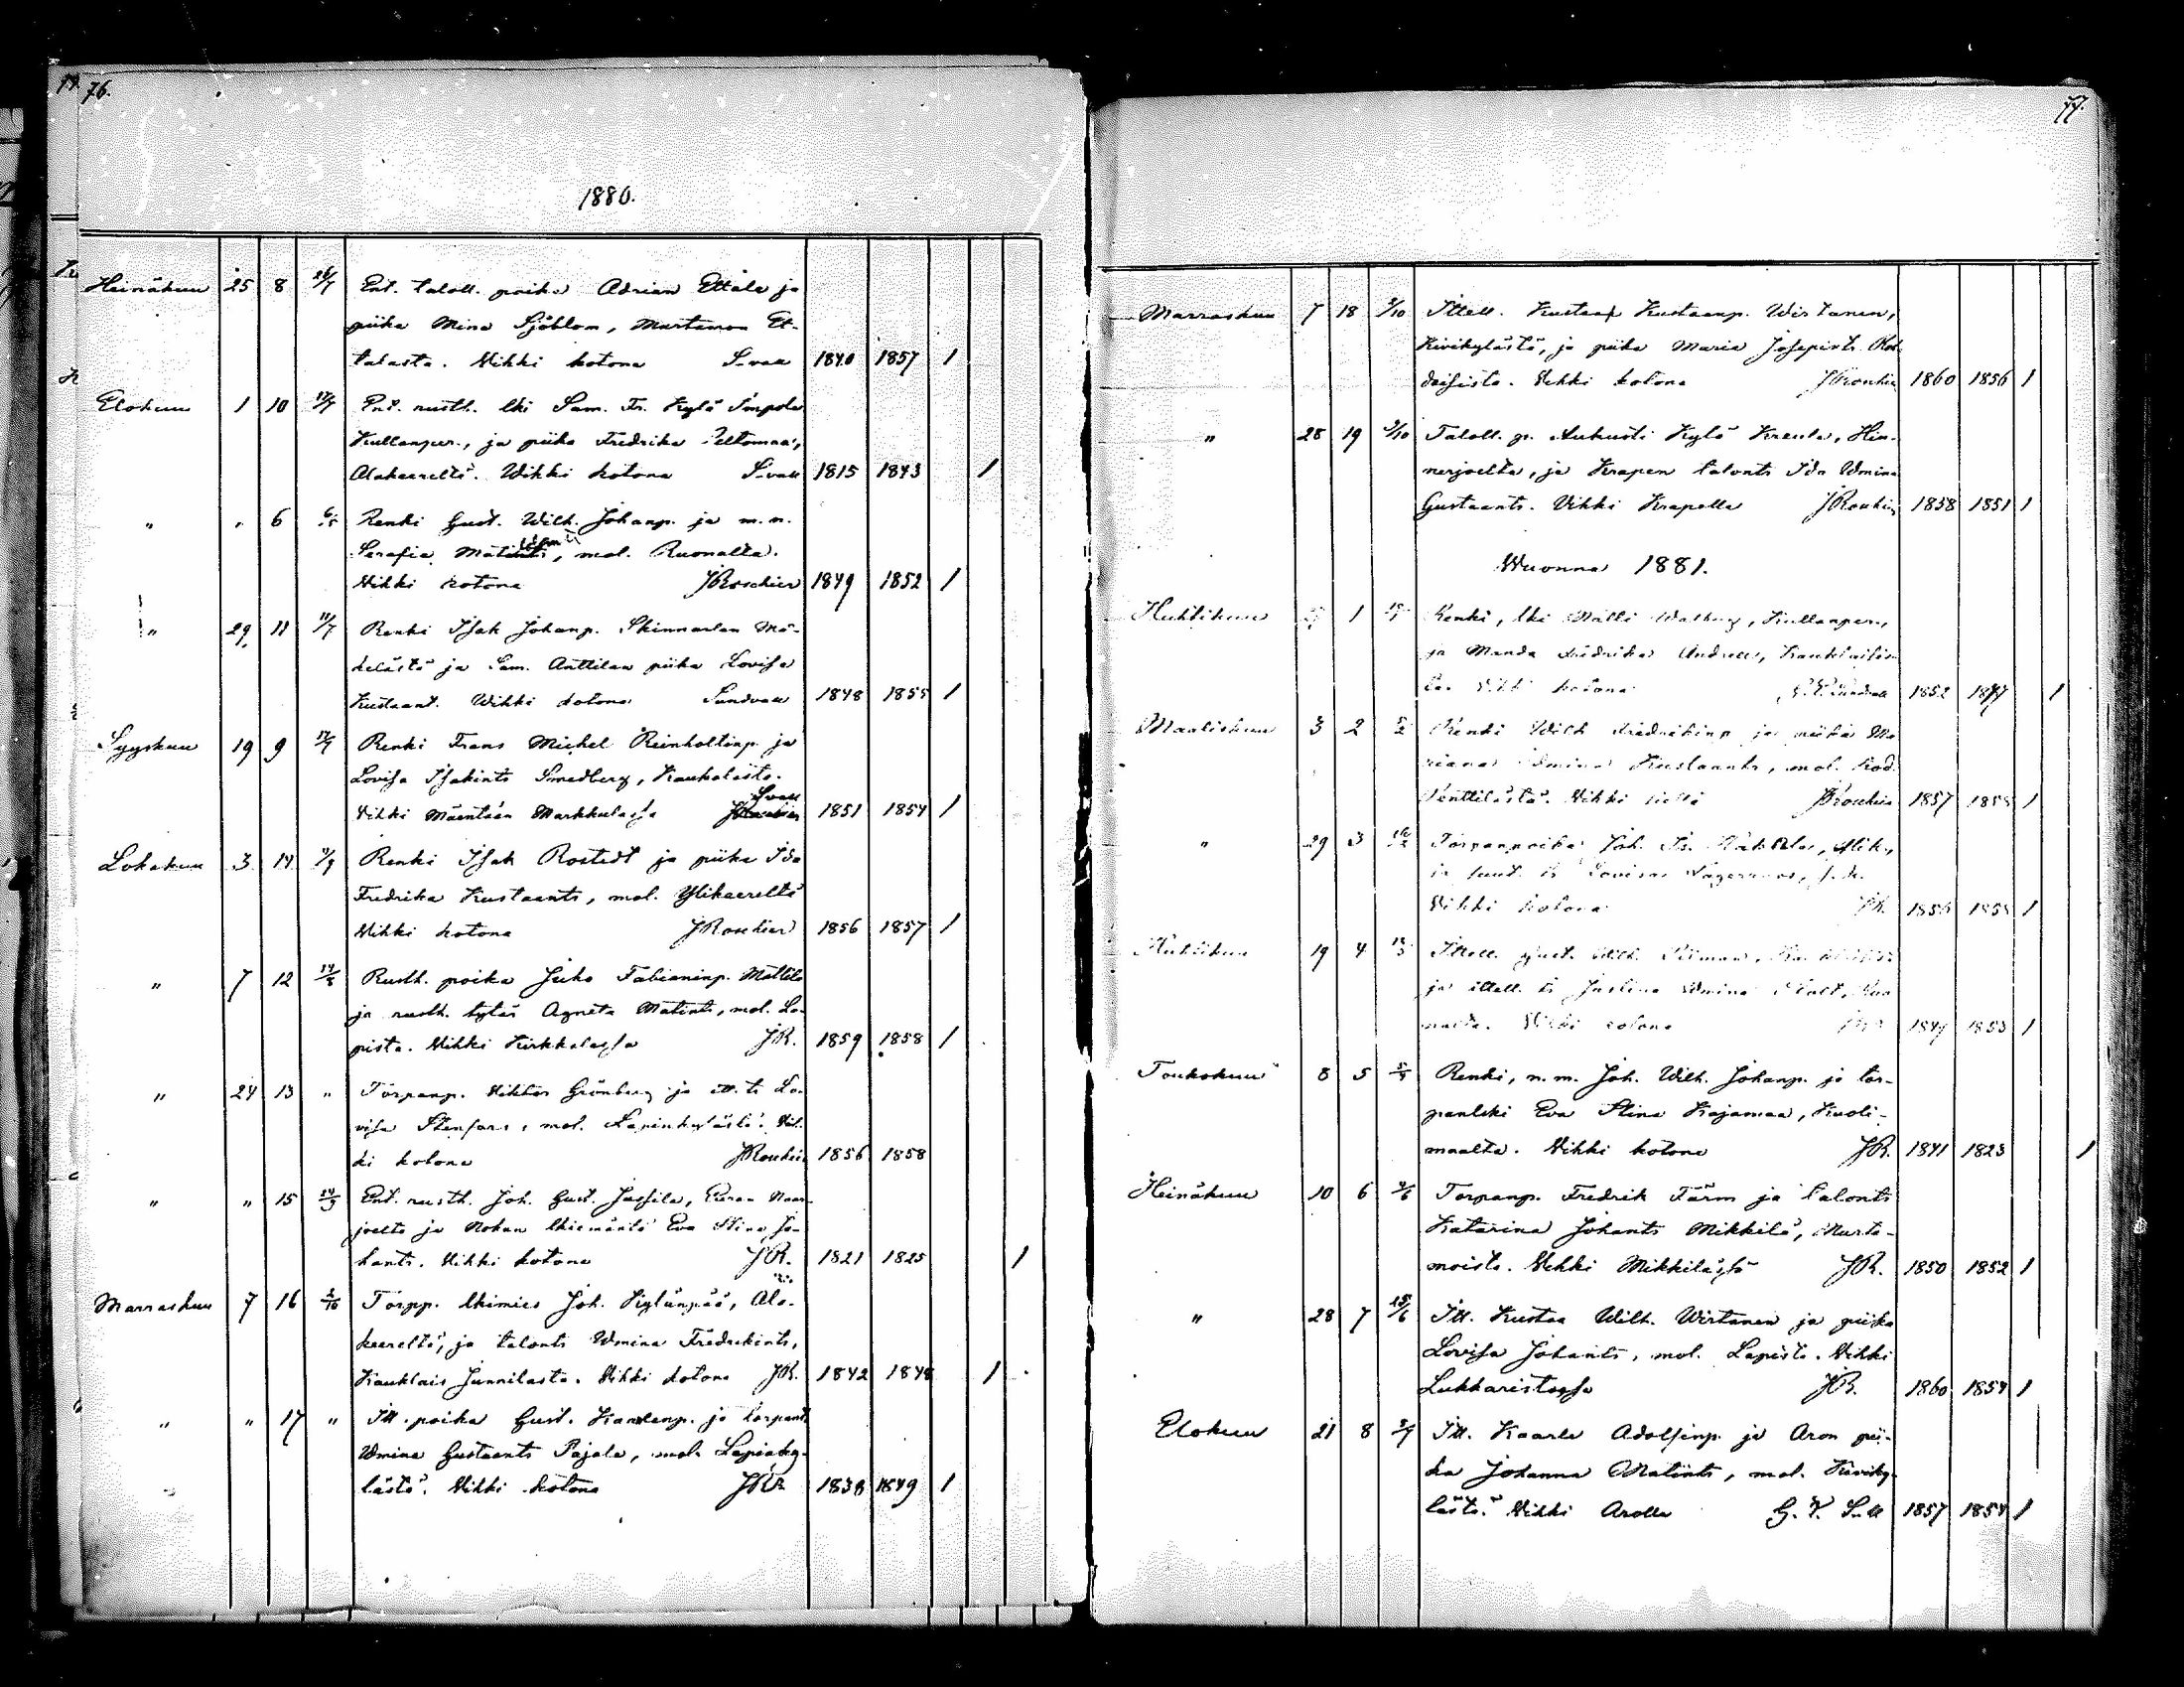 76.
1880.
Heinäkuu 25 8 26/7 Ent. taloll. poika Adrian Ettala ja
piika Mina Sjöblom, Murtamon Et-
talasta. Vihki kotona S-vall 1840 1857 1
Elokuu 1 10 Ent. rusth. lki Sam. Fr. Kylä Simpola
Kullanper., ja piika Fredrika Peltomaa,
Alakeereltä. Wihki kotona S-vall 1815 1843 1
" " 6 Renki Gust. Wilh. Johanp. ja m.n.
Serafia Matintr, mol. Ruonalta.
Vihki kotona JRoschier 1849 1852 1
" 29 11 11/7 Renki Isak Johanp. Skinnarlan Mä-
kelästä ja Sam. Anttilan piika Lovisa
Kustaant. Wihki kotona Sundvall 1848 1855 1
Syyskuu 19 9 Renki Frans Michel Reinholtinp. ja
Lovisa Isakints Smedberg, Kaukolasta.
Vihki Mäentään Markkulassa S-vall 1851 1854 1
Lokakuu 3 14 Renki Isak Rostedt ja piika Ida
Fredrika Kustaants, mol. Ylikeereltä
Vihki kotona JRoschier 1856 1857 1
" 7 12 Rusth. poika Juho Fabianinp. Mattila
ja rusth. tytär Agneta Matints, mol. La-
pista. Vihki Kirkkolassa JR. 1859 1858 1
" 24 13 " Torpanp. Viktor Grönberg ja itt. ts Lo-
visa Stenfors, mol. Lapinkylästä. Vih-
ki kotona JRoschier 1856 1858
" " 15 Ent. rusth. Joh. Gust. Jassila, Euran Naar-
joelta ja Nokan lkiemäntä Eva Stina Jo-
hants. Vihki kotona JR. 1821 1825 1
Marraskuu 7 16 2/10 Torpp. lkimies Joh. Kylänpää, Ala-
keereltä, ja talonts Wmina Fredrikints,
Kauklais Junnilasta. Vihki kotona JR. 1842 1848 1
" " 17 " Itt. poika Gust. Kaarlenp. ja torpants
Wmina Gustaants Pajala, mol. Lapinky-
lästä. Vihki kotona JR 1838 1849 1
77.
Marraskuu 7 18 Ittell. Kustaa Kustaanp. Wirtanen,
Kivikylästä, ja piika Maria Josepints Kod-
daisista. Vihki kotona JRoschier 1860 1856 1
" 28 19 Taloll. p. Aukusti Kylä Kreula, Hin-
nerjoelta, ja Krapen talonts Ida Wmina
Gustaants. Vihki Krapella JRoschier 1858 1851 1
Wuonna 1881.
Huhtikuu 1 Renki, lki Matti Walberg, Kullanper.,
ja Manda Fredrika
Vihki kotona 1852 1
Maaliskuu 3 2 Renki Wilh. Fredrikinp. ja piika Ma-
riana Wmina Kustaants, mol. Kod.
Penttilästä. Vihki siellä JRoschier 1857 1855 1
" 29 3 Torpanpoika Joh. Is.
ja Lovisa
Vihki kotona JR. 1856 1855 1
Huhtikuu 19 4 Ittell. Gust. Wilh.
ja ittell. ts Justina Wmina
Vihki kotona 1853 1
Toukokuu 8 5 Renki, n.m. Joh. Wilh. Johanp. ja tor-
panlski Eva Stina Kajamaa, Kuoli-
maalta. Vihki kotona JR. 1841 1823 1
Heinäkuu 10 6 Torpanp. Fredrik Färm ja talonts
Katarina Johants Mikkilä, Murta-
moista. Vihki Mikkilässä JR. 1850 1852 1
" 28 7 15/6 Itt. Kustaa Wilh. Wirtanen ja piika
Lovisa Johants, mol. Lapista. Vihki
Lukkaristossa JR. 1860 1854 1
Elokuu 21 8 Itt. Kaarle Adolfinp. ja Aron pii-
ka Johanna Matints, mol. Kiviky-
lästä. Vihki Arolla G. V. S-ll 1857 1854 1